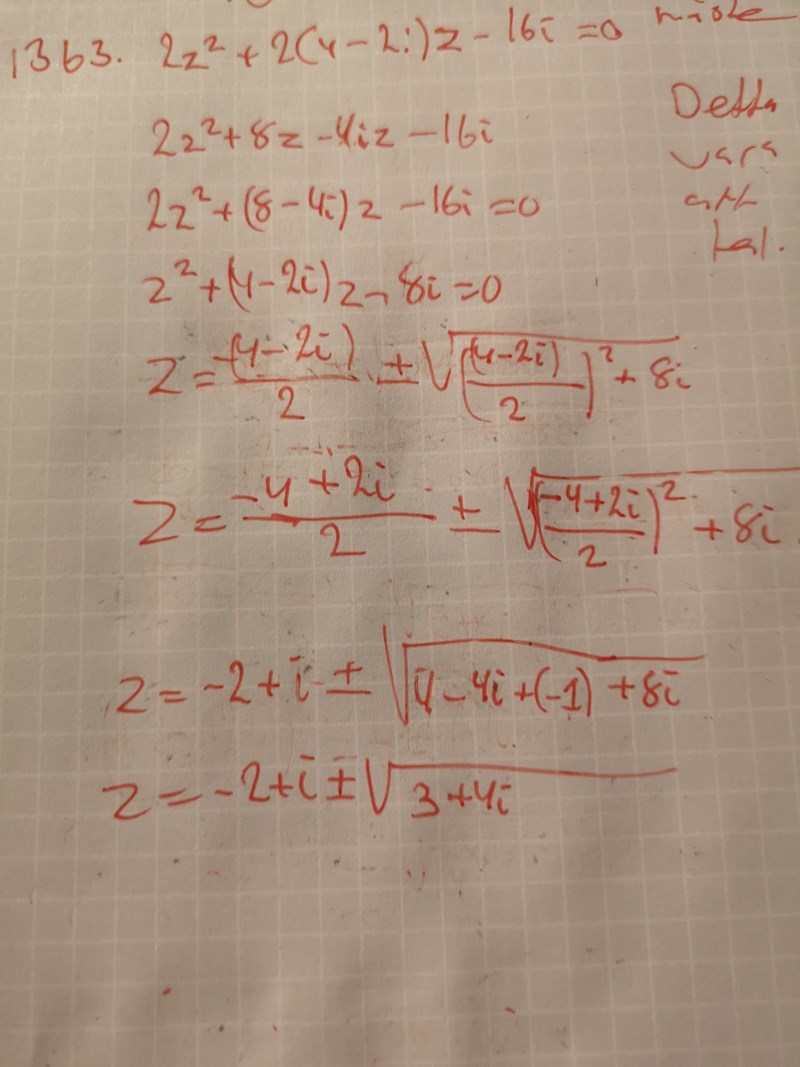 1363. 2z² + 2(4-2i)z - 16i = 0
2z² + 8z - 4iz - 16i
2z² + (8-4i)z - 16i = 0
z² + (4-2i)z - 8i = 0
z = -(4-2i)/2 ± √(((4-2i)/2)² + 8i)
z = (-4+2i)/2 ± √(((-4+2i)/2)² + 8i)
z = -2+i ± √(4-4i+(-1)+8i)
z = -2+i ± √(3+4i)
Detta
vara
att
tal.